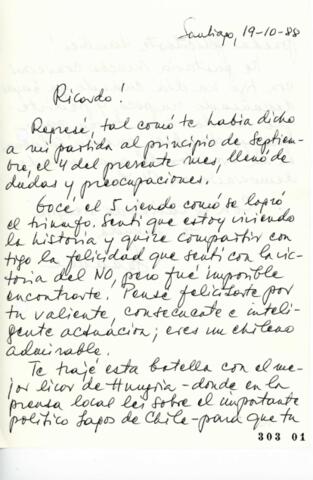 Santiago, 19-10-88
Ricardo!
Regresé, tal como te había dicho
a mi partida al principio de Septiem-
bre, el 4 del presente mes, lleno de
dudas y preocupaciones.
Gocé el 5 viendo como se logró
el triunfo. Sentí que estoy viviendo
la historia y quise compartir con
tigo la felicidad que sentí con la vic-
toria del NO, pero fué imposible
encontrarte. Pensé felicitarte por
tu valiente, consecuente e inteli-
gente actuación; eres un chileno
admirable.
Te traje esta botella con el me-
jor licor de Hungría - donde en la
prensa local leí sobre el importante
político Lagos de Chile - para que tu
303 01